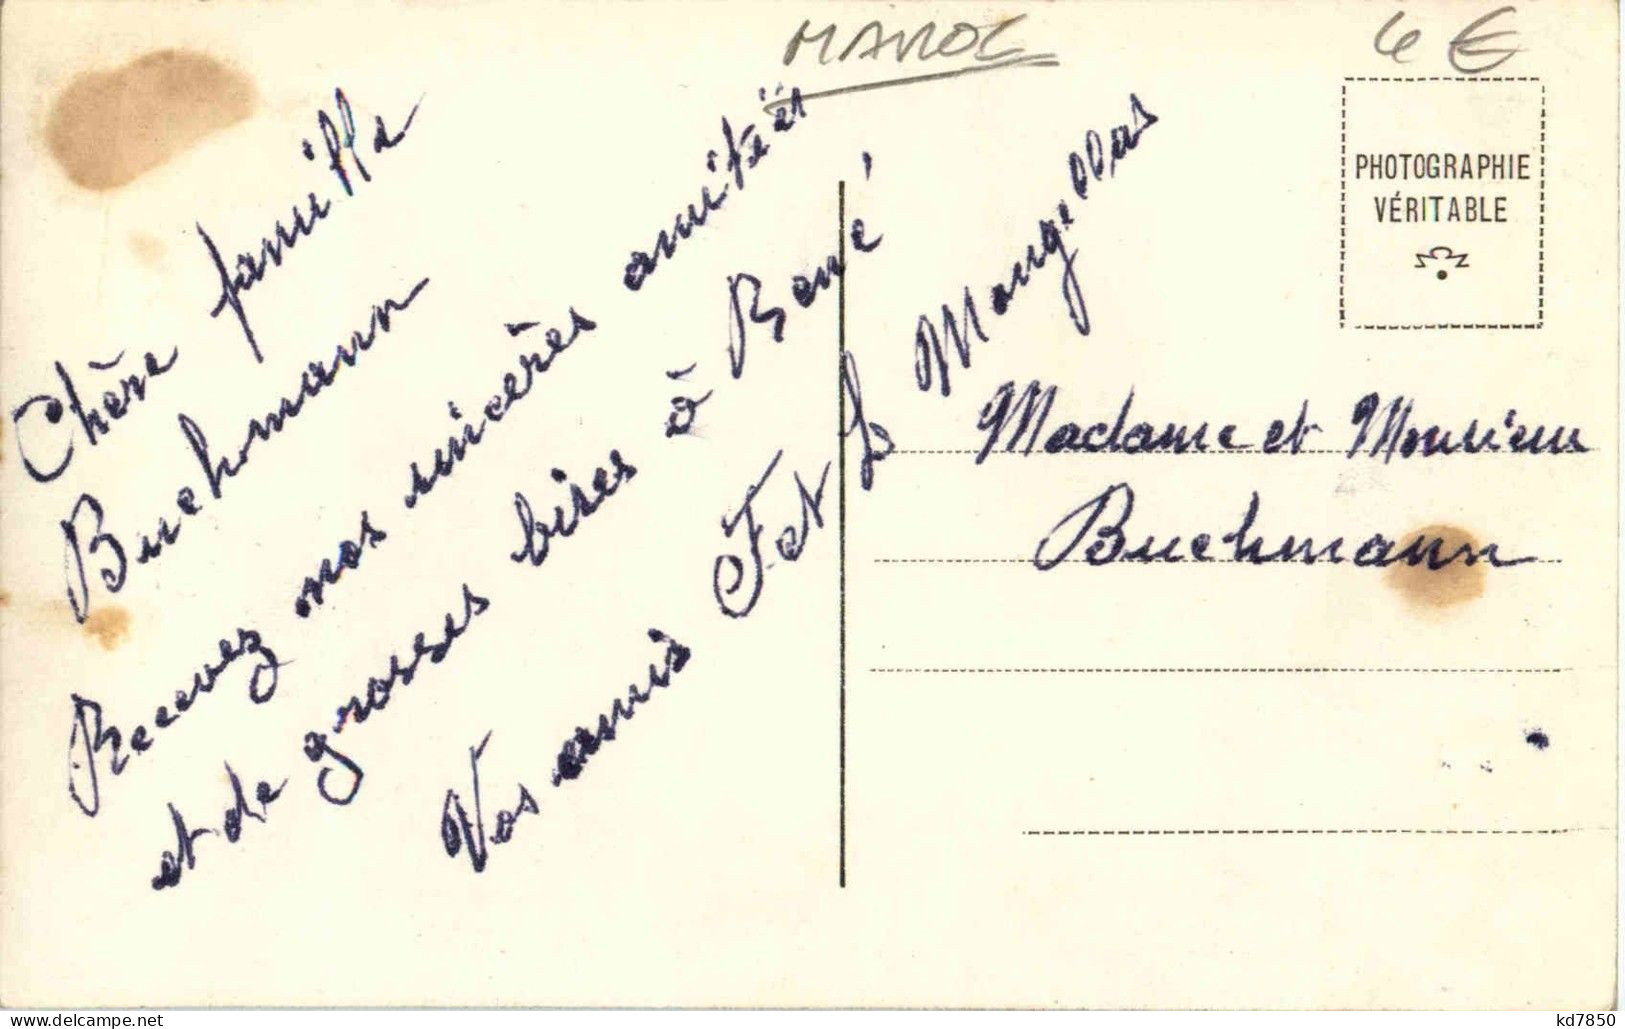 MAROC
6 €
PHOTOGRAPHIE
VÉRITABLE
Chère famille
Buchomann
Recevez nos sincères amitiés
et de grosses bises à René
Vos amis F et L Mougellas
Madame et Monsieur
Buchmann
kd7850